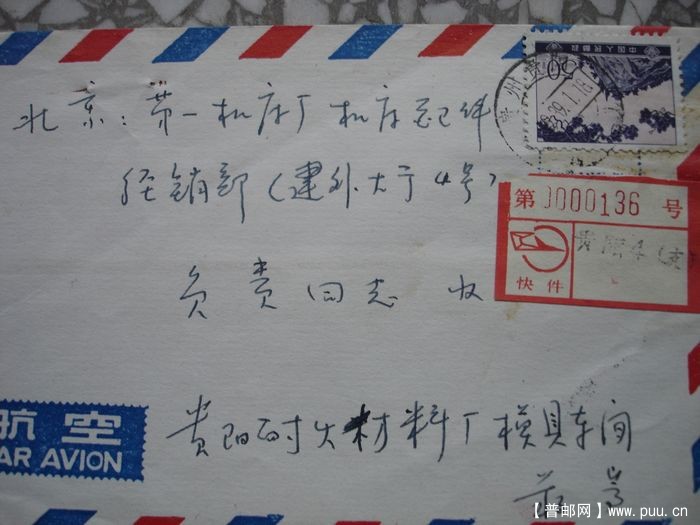 中国人民邮政
50
北京：第一机床厂机床配件
经销部（建外大厅4号）
第 0000136 号
快件
负责同志 收
航空
PAR AVION
贵阳耐火材料厂模具车间
【普邮网】www.puu.cn